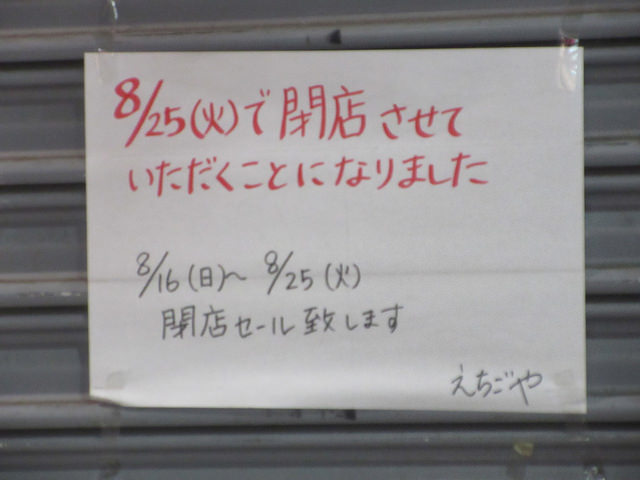 8/25(火)で閉店させて
いただくことになりました
8/16(日)~ 8/25(火)
閉店セール致します
えちごや